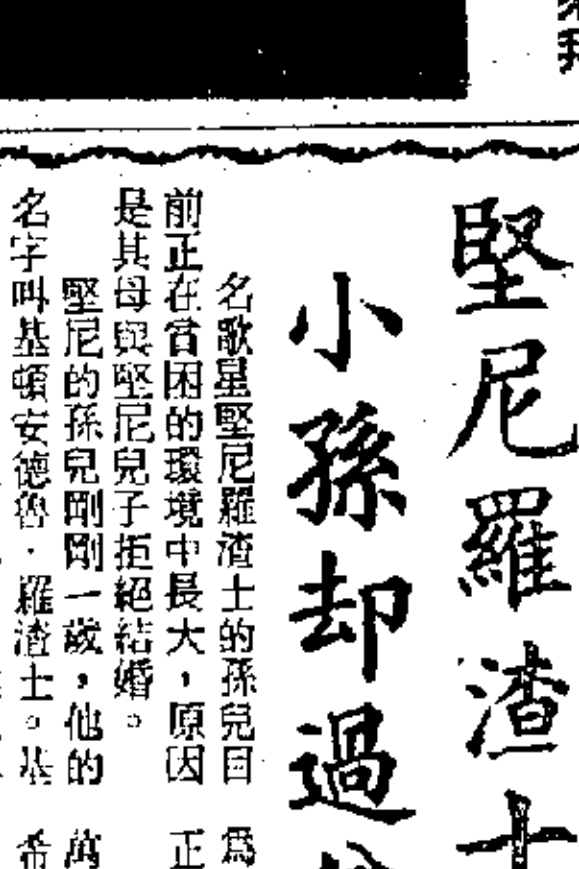 堅尼羅渣士
小孫却過
名歌星堅尼羅渣士的孫兒目
前正在貧困的環境中長大，原因
是其母與堅尼兒子拒絕結婚。
堅尼的孫兒剛剛一歲，他的
名字叫基頓安德魯．羅渣士。基
為
正
萬
希